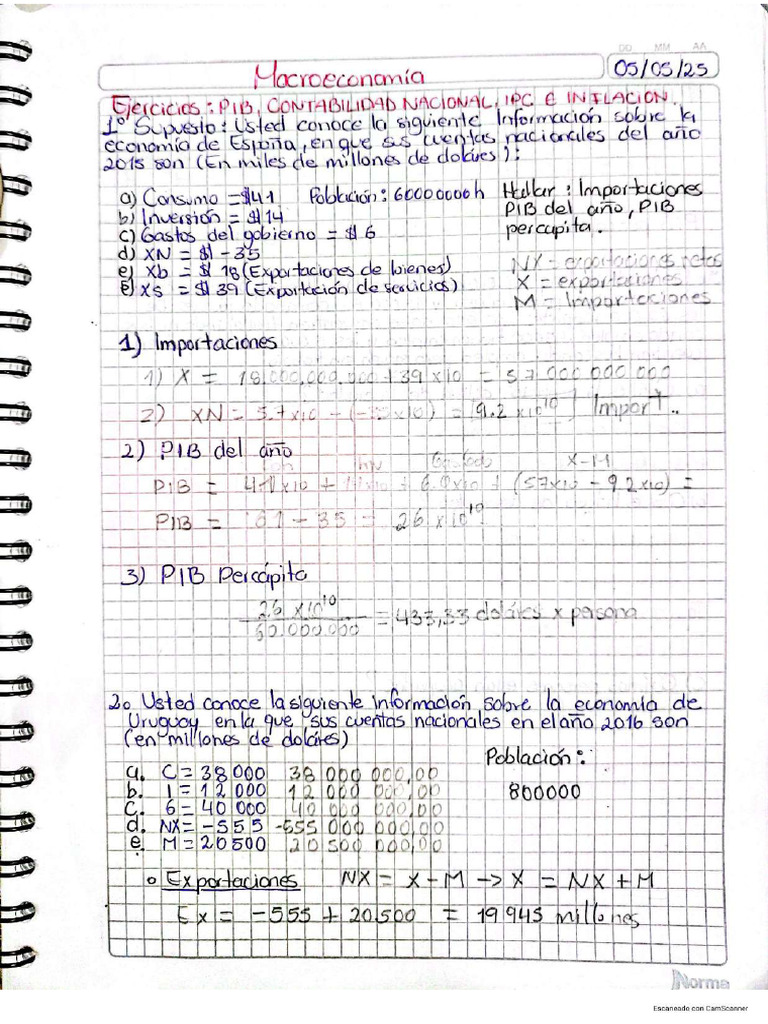 DD MM AA
Macroeconomía
05/05/25
Ejercicios: PIB, CONTABILIDAD NACIONAL, IPC E INFLACIÓN.
1º Supuesto: Usted conoce la siguiente Información sobre la
economía de España, en que sus cuentas nacionales del año
2015 son (En miles de millones de doláres):
a) Consumo = $41 Población: 60000000h Hallar: Importaciones
b) Inversión = $14 PIB del año, PIB
c) Gastos del gobierno = $6 percapita.
d) XN = $ -35 NX = exportaciones netas
e) Xb = $ 18 (Exportaciones de bienes) X = exportaciones
Xs = $ 39 (Exportación de servicios) M = Importaciones
1) Importaciones
1) X = 18.000.000.000 + 39 x10 = 57 000 000 000
2) XN = 5.7x10 - ( x10) = 9.2 x10¹⁰ Import..
2) PIB del año
X-M
PIB = x10 + x10 + 6.0x10 + (57x10 - 92x10) =
PIB = 61 - 35 = 26 x10¹⁰
3) PIB Percápita
26 x10¹⁰
60.000.000 = 433,33 doláres x persona
2o Usted conoce la siguiente información sobre la economía de
Uruguay en la que sus cuentas nacionales en el año 2016 son
(en millones de doláres)
Población:
a. C = 38 000 38 000 000,00
b. I = 12 000 12 000 000,00 800000
c. G = 40 000 40 000 000,00
d. NX = -555 -555 000 000,00
e. M = 20 500 20 500 000,00
o Exportaciones NX = X - M -> X = NX + M
Ex = -555 + 20.500 = 19 945 millones
Norma
Escaneado con CamScanner